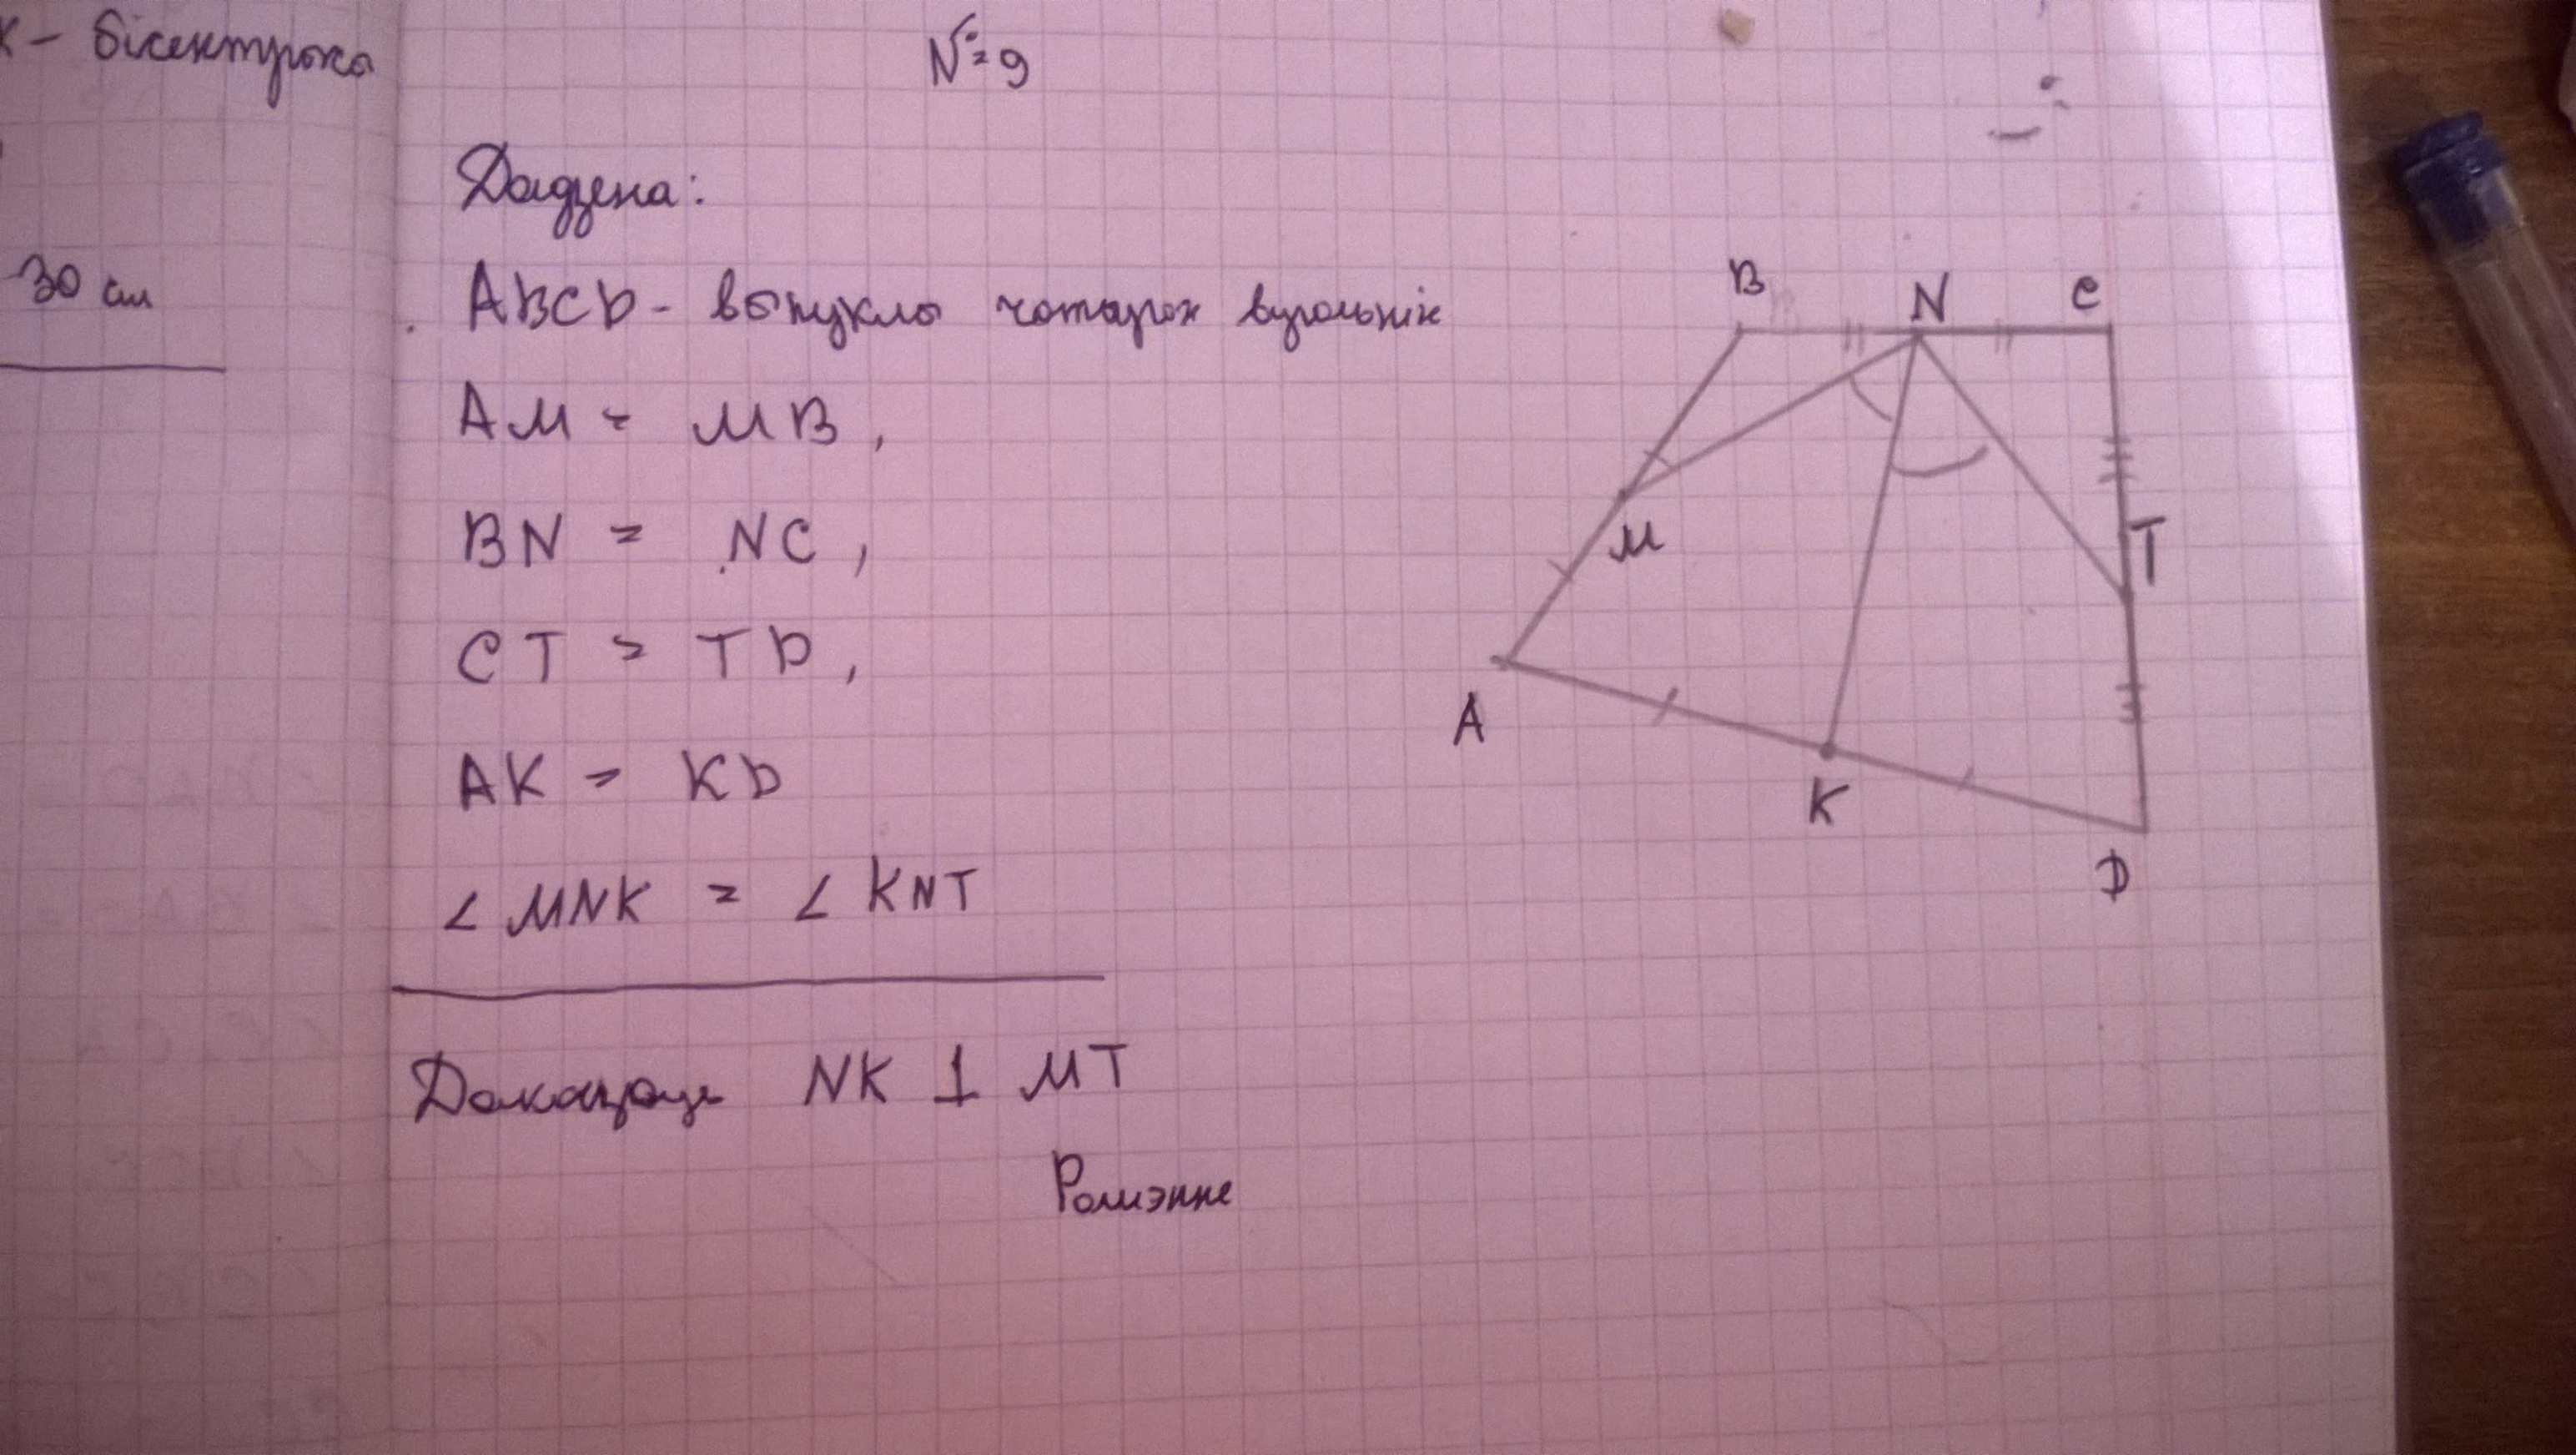 К - бісектрыса
30 см
№ 9
Дадзена:
ABCD - выпуклы чатырох вугольнік
AM = MB,
BN = NC,
CT = TD,
AK = KD
∠ MNK = ∠ KNT
Даказаць NK ⊥ MT
Рашэнне
B N C
M T
A K D